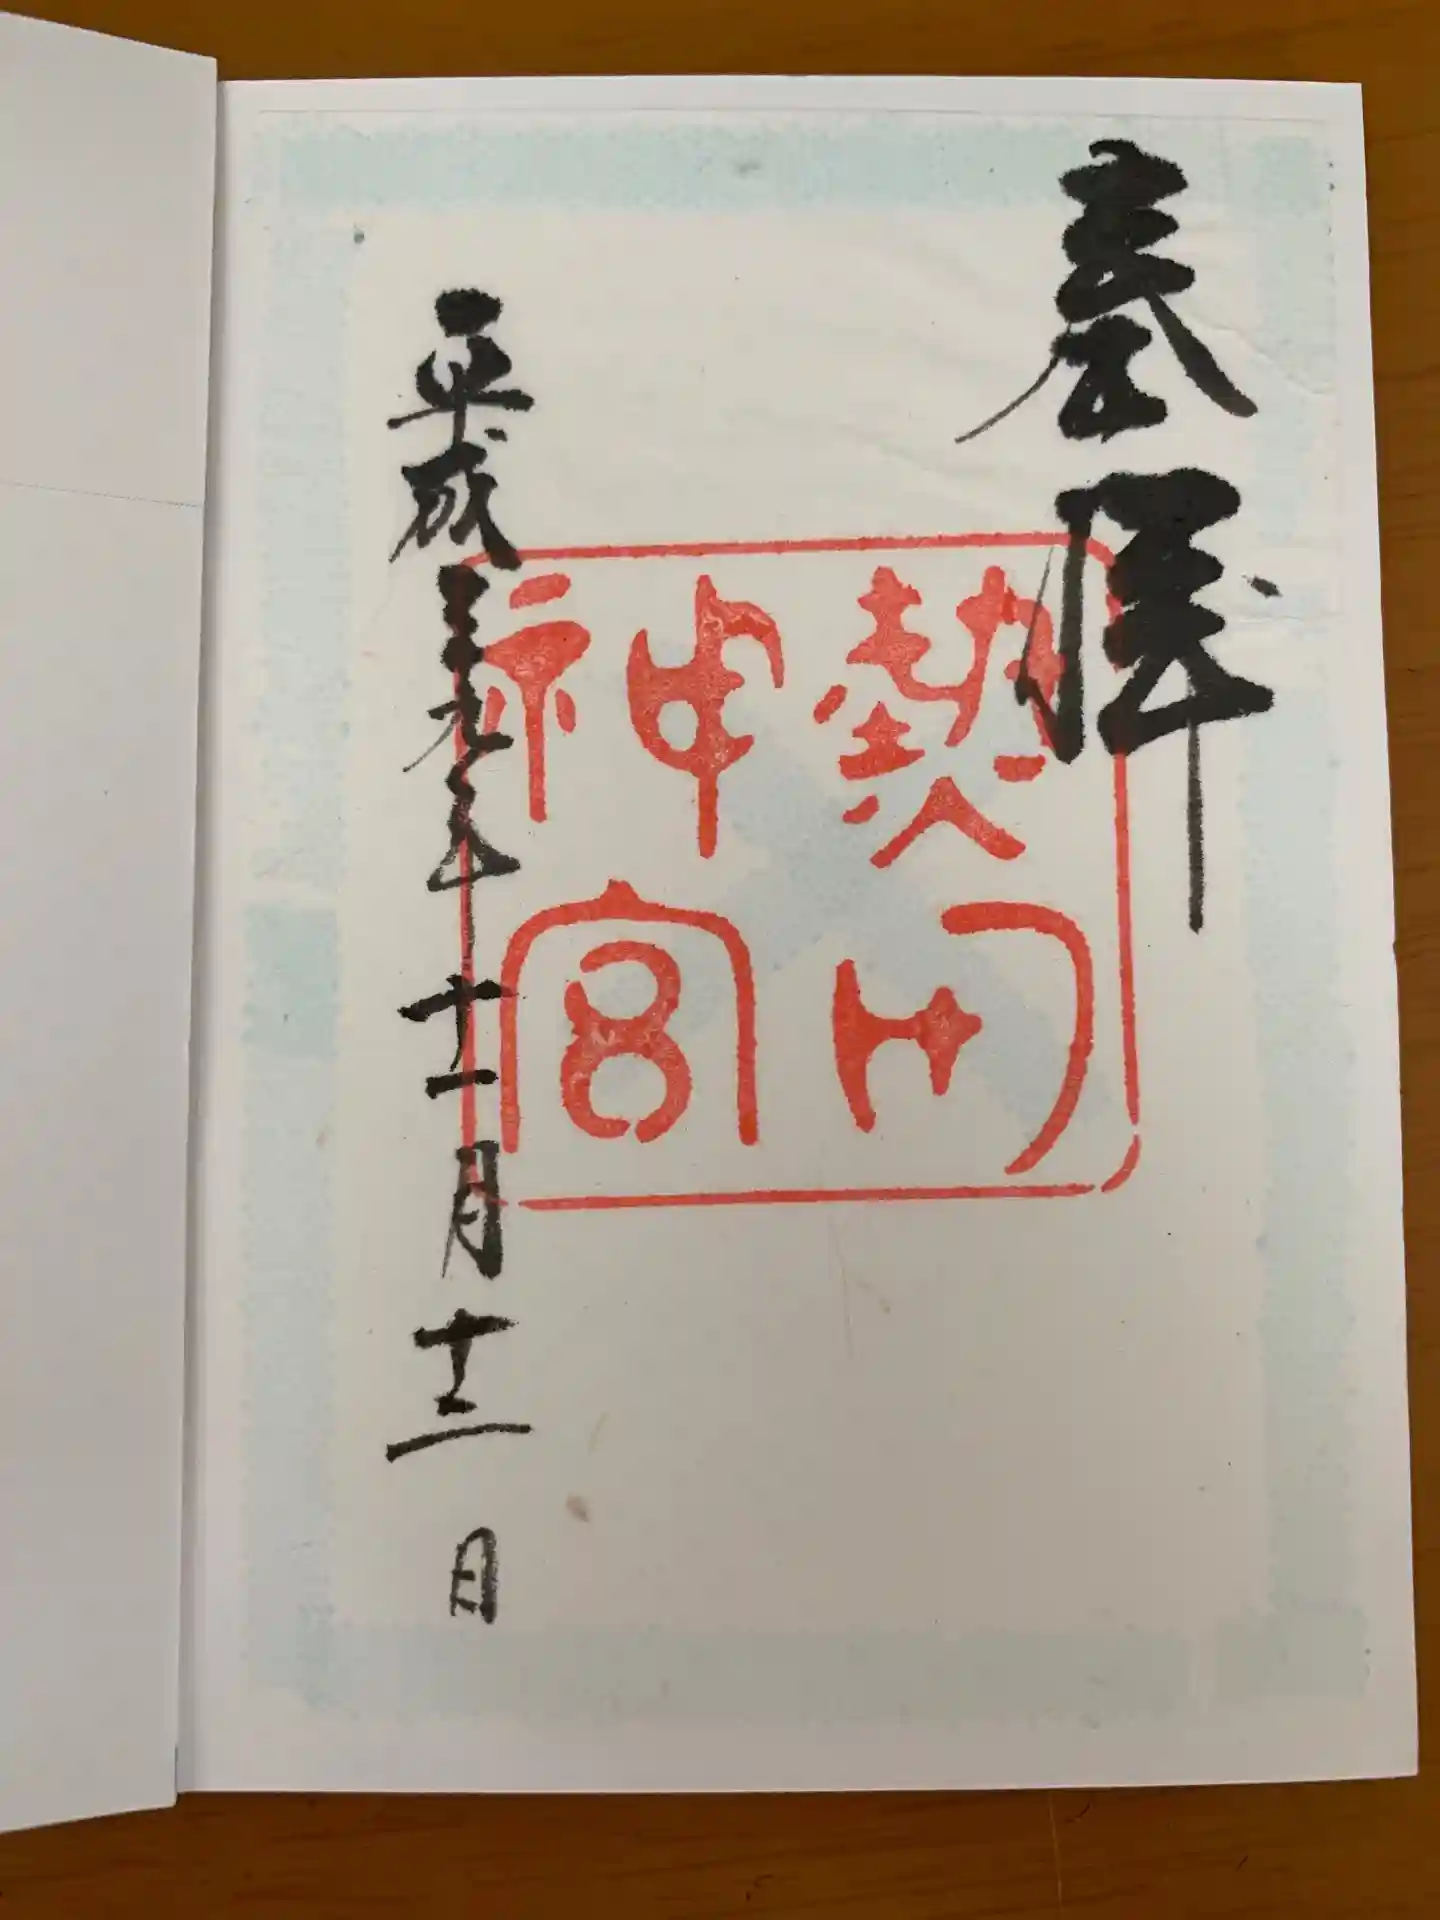 奉拝
熱田
神宮
平成二十九年十一月十三日